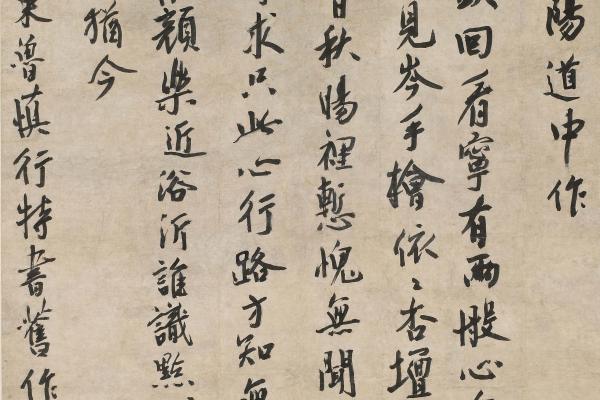 陽道中作
回看寧有兩般心
見手檜依〻杏壇
秋暘裡慙愧無聞
求只此心行路方知無
顏樂近浴沂誰識點
猶今
魯慎行特書舊作